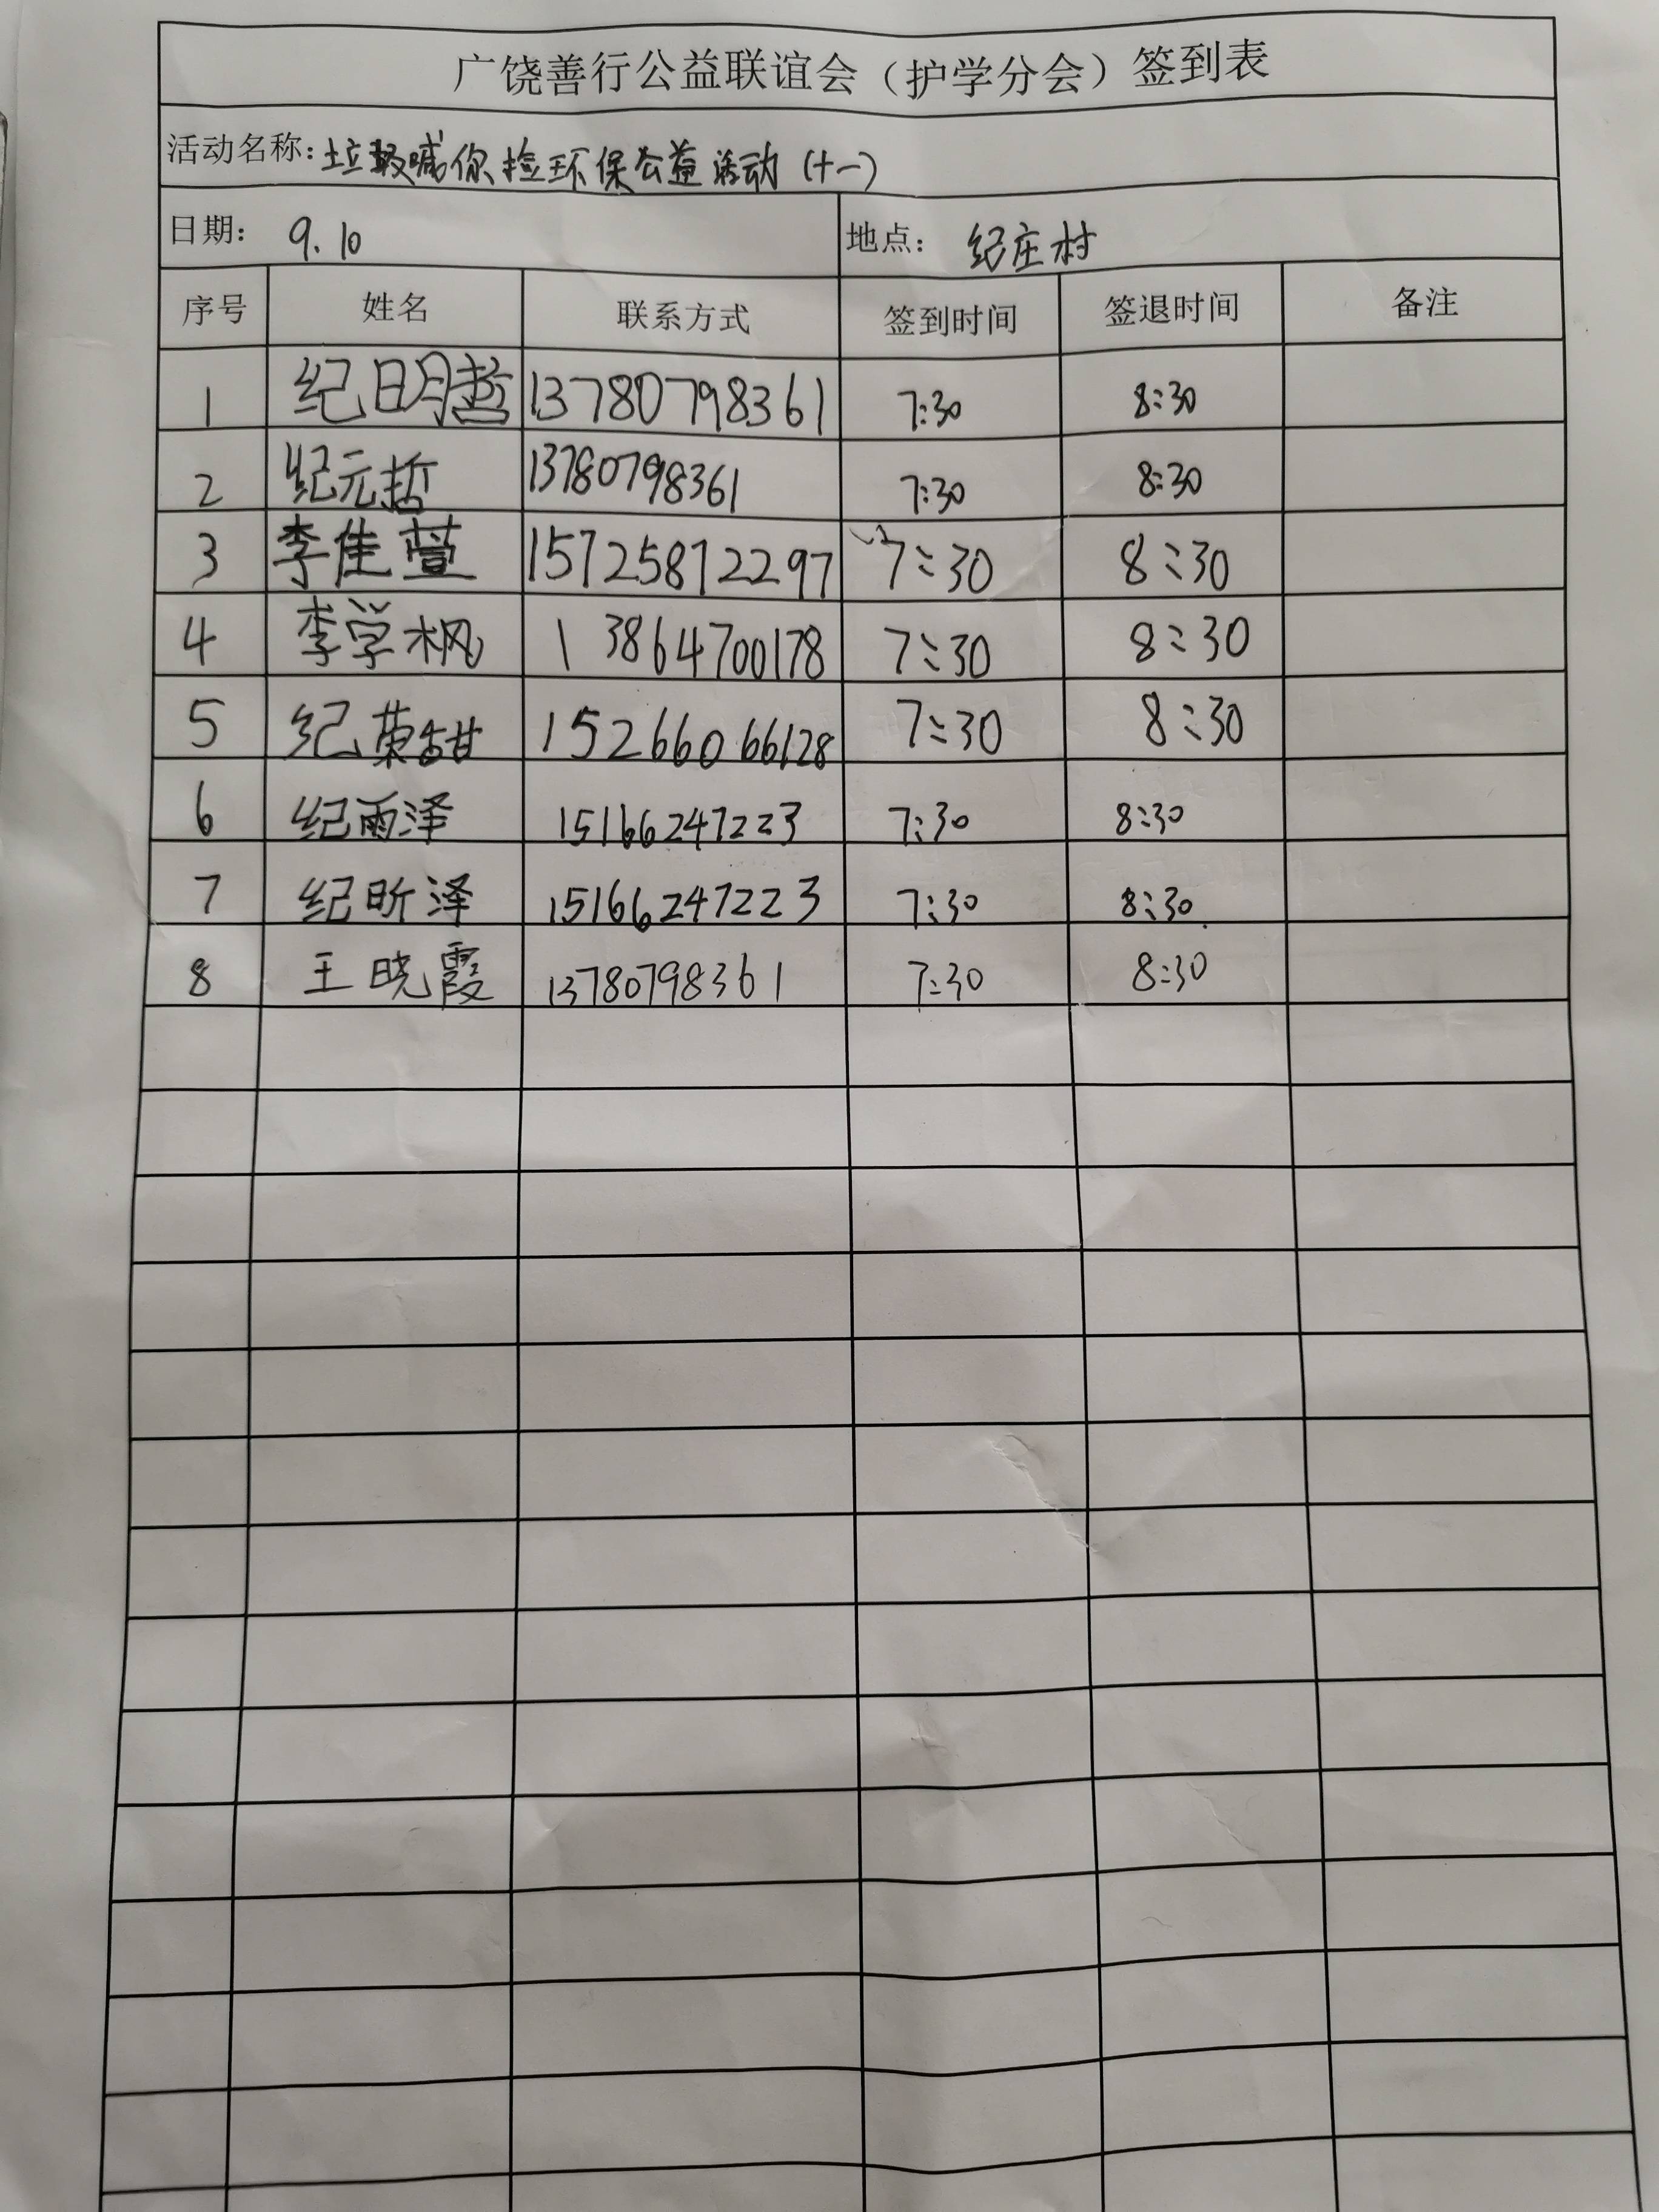 广饶善行公益联谊会（护学分会）签到表
活动名称：垃圾喊你捡环保公益活动（十一）
日期： 9.10 地点： 纪庄村
序号 姓名 联系方式 签到时间 签退时间 备注
1 纪明哲 13780798361 7:30 8:30
2 纪元哲 13780798361 7:30 8:30
3 李佳萱 15725872297 7:30 8:30
4 李学枫 13864700178 7:30 8:30
5 纪荣甜 15266066128 7:30 8:30
6 纪雨泽 15166247223 7:30 8:30
7 纪昕泽 15166247223 7:30 8:30
8 王晓霞 13780798361 7:30 8:30